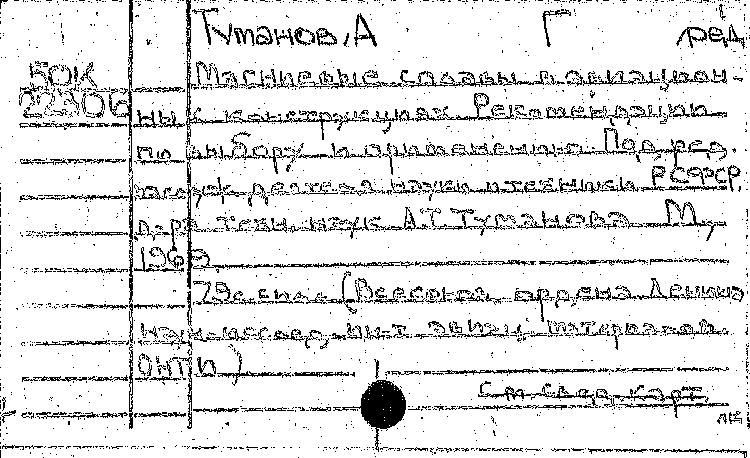 Туманов, А Г ред.
50К Магниевые сплавы в авиацион-
22306 ных конструкциях. Рекомендации
по выбору и применению. Под ред.
заслуж. деятеля науки и техники РСФСР,
д-ра техн. наук А.Т. Туманова М.,
1969
79с. (Всесоюз. ордена Ленина
науч.-исслед. ин-т авиац. материалов.
ОНТИ)
См. след. карт.